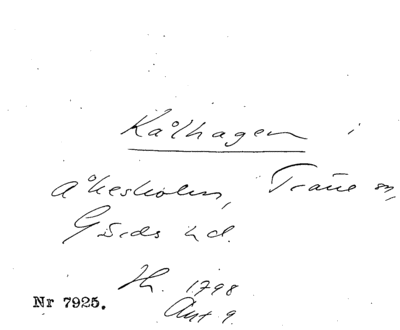 Kålhagen i
Åkesholm, Träne sn,
Gärds hd.
Hl. 1798
Akt 9.
Nr 7925.